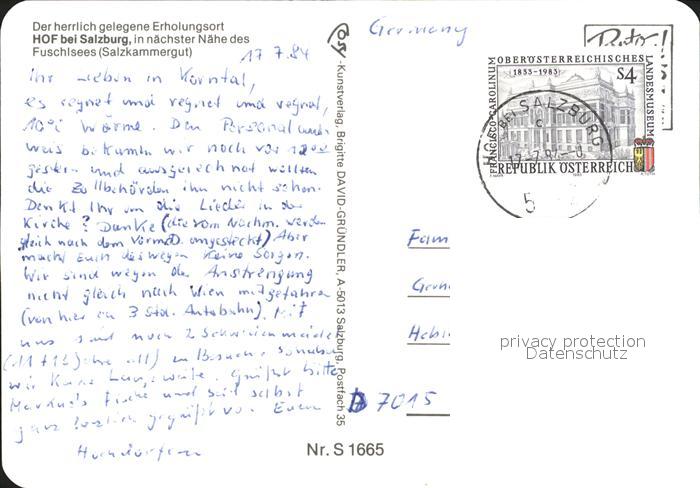 Der herrlich gelegene Erholungsort
HOF bei Salzburg, in nächster Nähe des
Fuschlsees (Salzkammergut)
17 7. 84
Ihr Lieben in Korntal,
es regnet und regnet und regnet,
10° Wärme. Den Personalaus-
weis bekamen wir noch vor
gestern und ausgerechnet wollten
die Zollbehörden ihn nicht sehen.
Denkt Ihr um die Lieder in der
Kirche? Danke (die vom Nachm. werden
gleich nach dem VormD. angesteckt) Aber
macht Euch deswegen keine Sorgen.
Wir sind wegen der Anstrengung
nicht gleich nach Wien mitgefahren
(von hier ca 3 Std. Autobahn). Mit
uns sind noch 2
(11 + 12 Jahre alt) zu Besuch, sodaß
wir keine Langeweile. Grüßt bitte
Markus Fische und seid selbst
ganz herzlich gegrüßt von Euern
Posy-Kunstverlag, Brigitte DAVID-GRÜNDLER, A-5013 Salzburg, Postfach 35
Nr. S 1665
Germany
OBERÖSTERREICHISCHES
LANDESMUSEUM
FRANCISCO-CAROLINUM
(1833-1983)
S4
REPUBLIK ÖSTERREICH
HOF BEI SALZBURG
c
5
Fam
Hebi
D 7015
privacy protection
Datenschutz